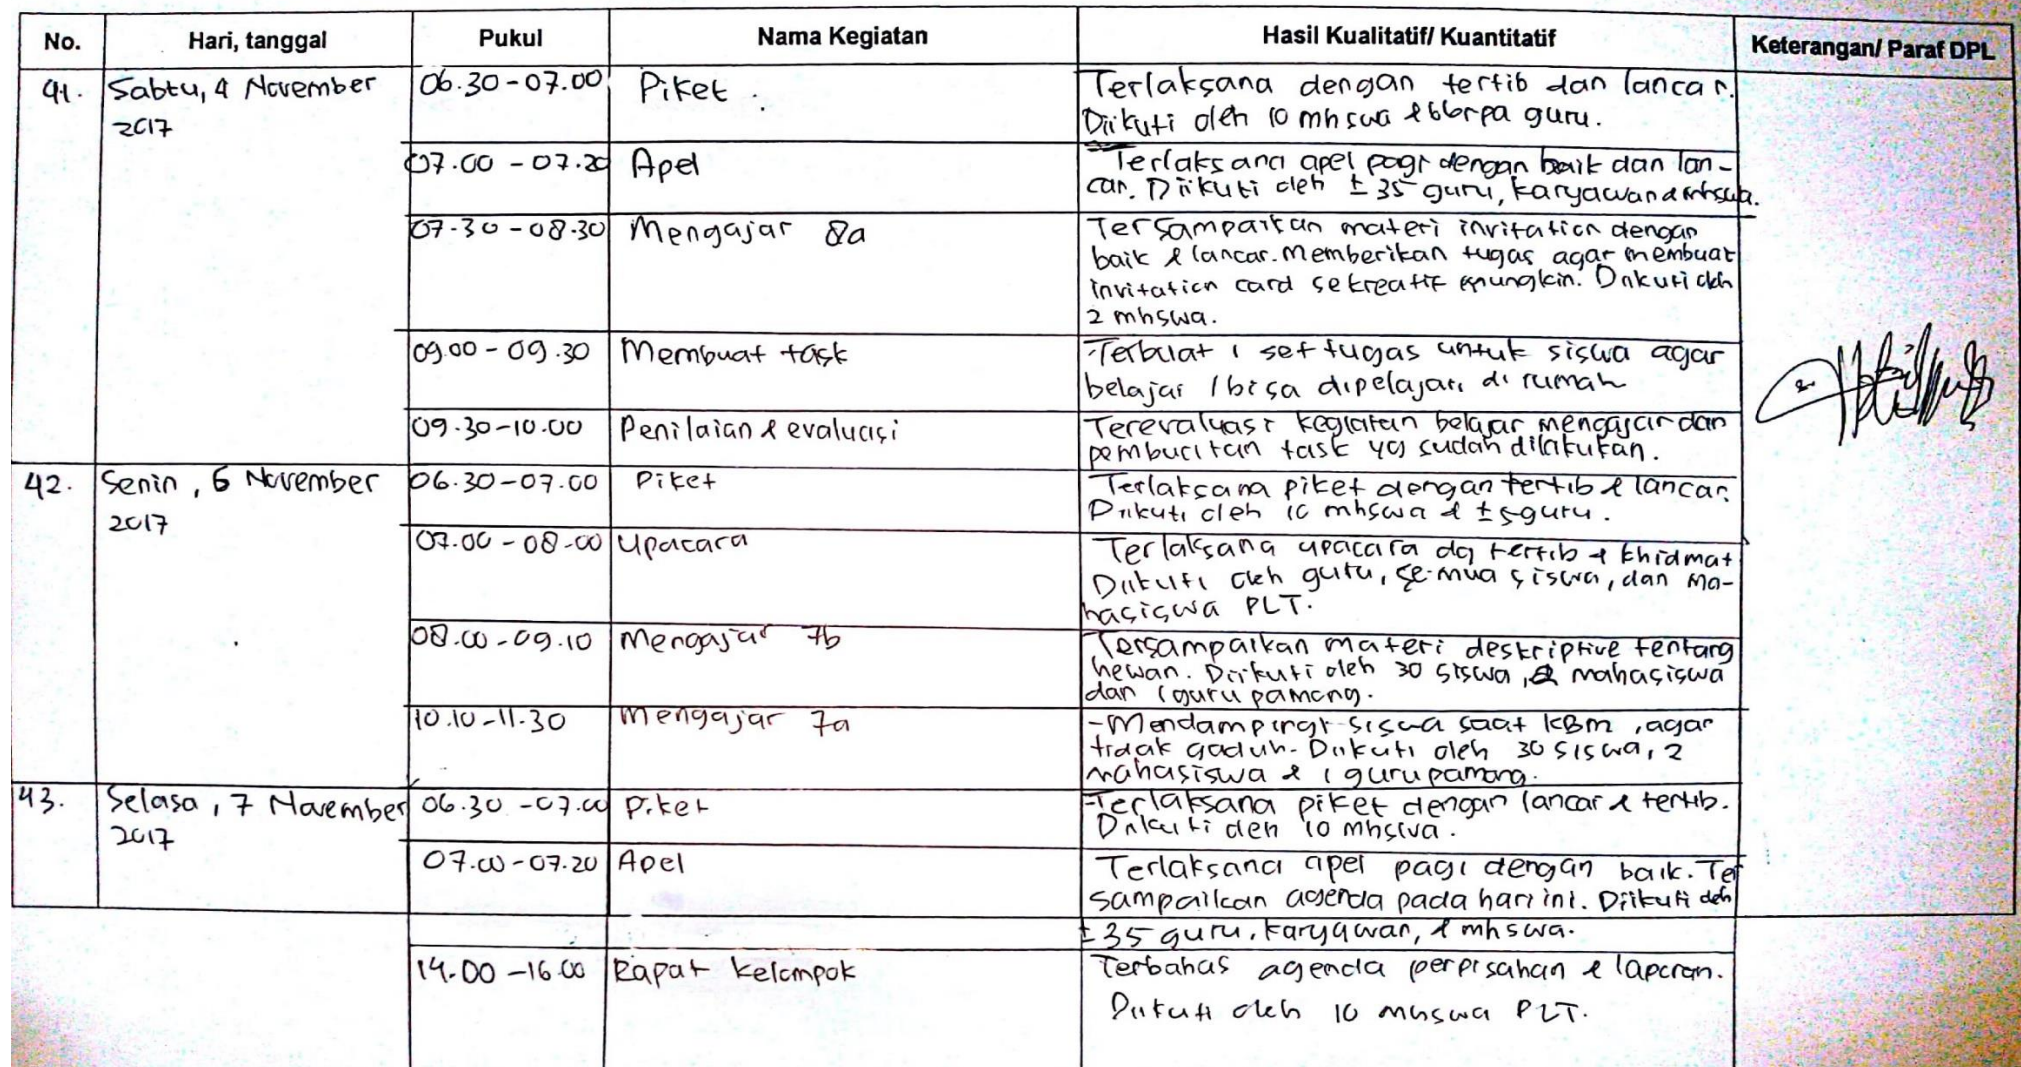 No. Hari, tanggal Pukul Nama Kegiatan Hasil Kualitatif/ Kuantitatif Keterangan/ Paraf DPL
41. Sabtu, 4 November 06.30-07.00 Piket. Terlaksana dengan tertib dan lancar.
2017 Diikuti oleh 10 mhswa & bbrpa guru.
07.00 - 07.20 Apel Terlaksana apel pagi dengan baik dan lan-
car. Diikuti oleh ± 35 guru, karyawan & mhswa.
07.30 - 08.30 Mengajar 8a Tersampaikan materi invitation dengan
baik & lancar. Memberikan tugas agar membuat
invitation card sekreatif mungkin. Diikuti oleh
2 mhswa.
09.00 - 09.30 Membuat task Terbuat 1 set tugas untuk siswa agar
belajar / bisa dipelajari di rumah
09.30-10.00 Penilaian & evaluasi Terevaluasi kegiatan belajar mengajar dan
pembuatan task yg sudah dilakukan.
42. Senin, 6 November 06.30-07.00 Piket Terlaksana piket dengan tertib & lancar.
2017 Diikuti oleh 10 mhswa & ± 5 guru.
07.00 - 08.00 Upacara Terlaksana upacara dg tertib & khidmat
Diikuti oleh guru, semua siswa, dan ma-
hasiswa PLT.
08.00 - 09.10 Mengajar 7b Tersampaikan materi deskriptive tentang
hewan. Diikuti oleh 30 siswa, 2 mahasiswa
dan 1 guru pamong.
10.10 - 11.30 Mengajar 7a - Mendampingi siswa saat KBM, agar
tidak gaduh. Diikuti oleh 30 siswa, 2
mahasiswa & 1 guru pamong.
43. Selasa, 7 November 06.30 - 07.00 Piket Terlaksana piket dengan lancar & tertib.
2017 Diikuti oleh 10 mhswa.
07.00 - 07.20 Apel Terlaksana apel pagi dengan baik. Ter
sampaikan agenda pada hari ini. Diikuti oleh
± 35 guru, karyawan, & mhswa.
14.00 - 16.00 Rapat kelompok Terbahas agenda perpisahan & laporan.
Diikuti oleh 10 mhswa PLT.